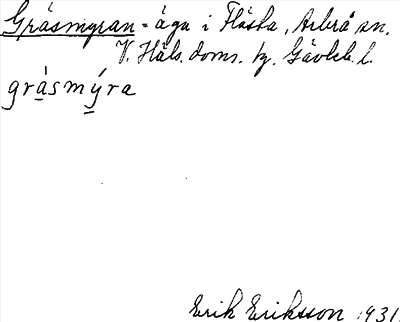 Gräsmyran - äga i Flästa, Arbrå sn,
V. Häls. doms. tg. Gävleb. l.
gràsmýra
Erik Eriksson 1931.